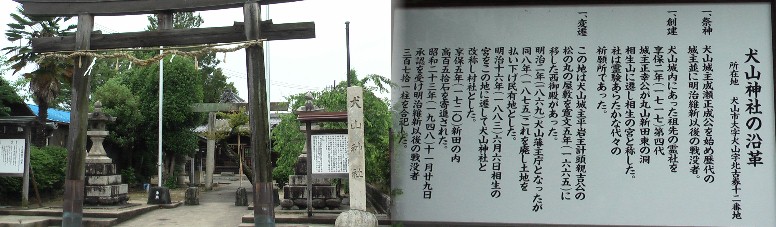 犬山神社
犬山神社の沿革
所在地　犬山市大字犬山字北古券十二番地
一、祭神
犬山城主成瀬正成公を始め歴代の
城主並に明治維新以後の戦没者。
一、創建
犬山城内にあった祖先の霊社を
享保二年（一七一七）第四代
城主正幸公が丸山新田東の洞
相生山に遷し相生の宮と称した。
社は霊験あらたかな代々の
祈願所であった。
一、変遷
この地は犬山城主平岩主計頭親吉公の
松の丸の屋敷を寛文五年（一六六五）に
移した西御殿があった。
明治二年（一八六九）犬山藩主庁となったが
同八年（一八七五）これを廃し土地を
払い下げ民有地とした。
明治十六年（一八八三）六月六日相生の
宮をこの地に遷して犬山神社と
改称し村社とした。
享保五年（一七二〇）新田の内
高百五拾石を寄進された。
昭和二十三年（一九四八）十一月廿九日
承認を受け明治維新以後の戦没者
三百七拾一柱を合祀した。